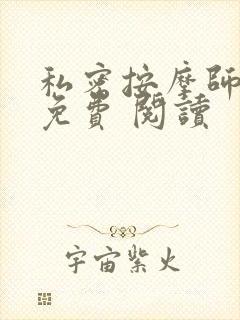 私密按摩師
免費 閱讀
宇宙紫火